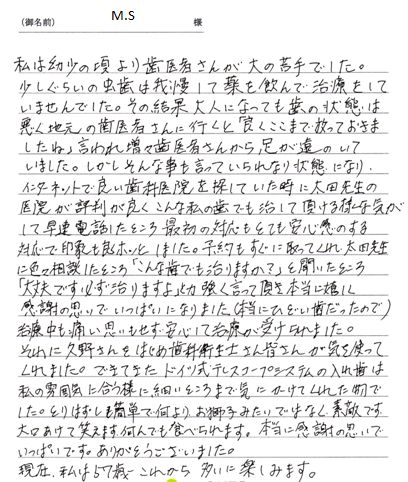 (御名前) M.S 様
私は幼少の頃より歯医者さんが大の苦手でした。
少しぐらいの虫歯は我慢して薬を飲んで治療をして
いませんでした。その結果大人になっても歯の状態は
悪く地元の歯医者さんに行くと「良くここまで放っておきま
したね」言われ増々歯医者さんから足が遠のいて
いました。しかしそんな事も言っていられなり状態になり、
インターネットで良い歯科医院を探していた時に太田先生の
医院が評判が良くこんな私の歯でも治して頂ける様な気が
して早速電話したところ最初の対応もとても安心感のする
対応で印象も良ホッと しました。予約もすぐに取ってくれ太田先生
に色々相談したところ「こんな歯でも治りますか?」と聞いたところ
「大丈夫です!必ず治りますよ」と力強く言って頂き本当に嬉しく
感謝の思いでいっぱいになりました(本当にひどい歯だったので)
治療中も痛い思いもせず安心して治療が受けられました。
それに久野さんをはじめ歯科衛生士さん皆さんが気を使って
くれました。できてきたドイツ式テレスコープシステムの入れ歯は
私の雰囲気に合う様に細いところまで気にかけてくれた物で
した。とりはずしも簡単で何よりお獅子みたいではなく素敵です
大口あけて笑えます。何んでも食べられます。本当に感謝の思いで
いっぱいです。ありがとうございました。
現在、私は57歳 これから 多いに楽しみます。